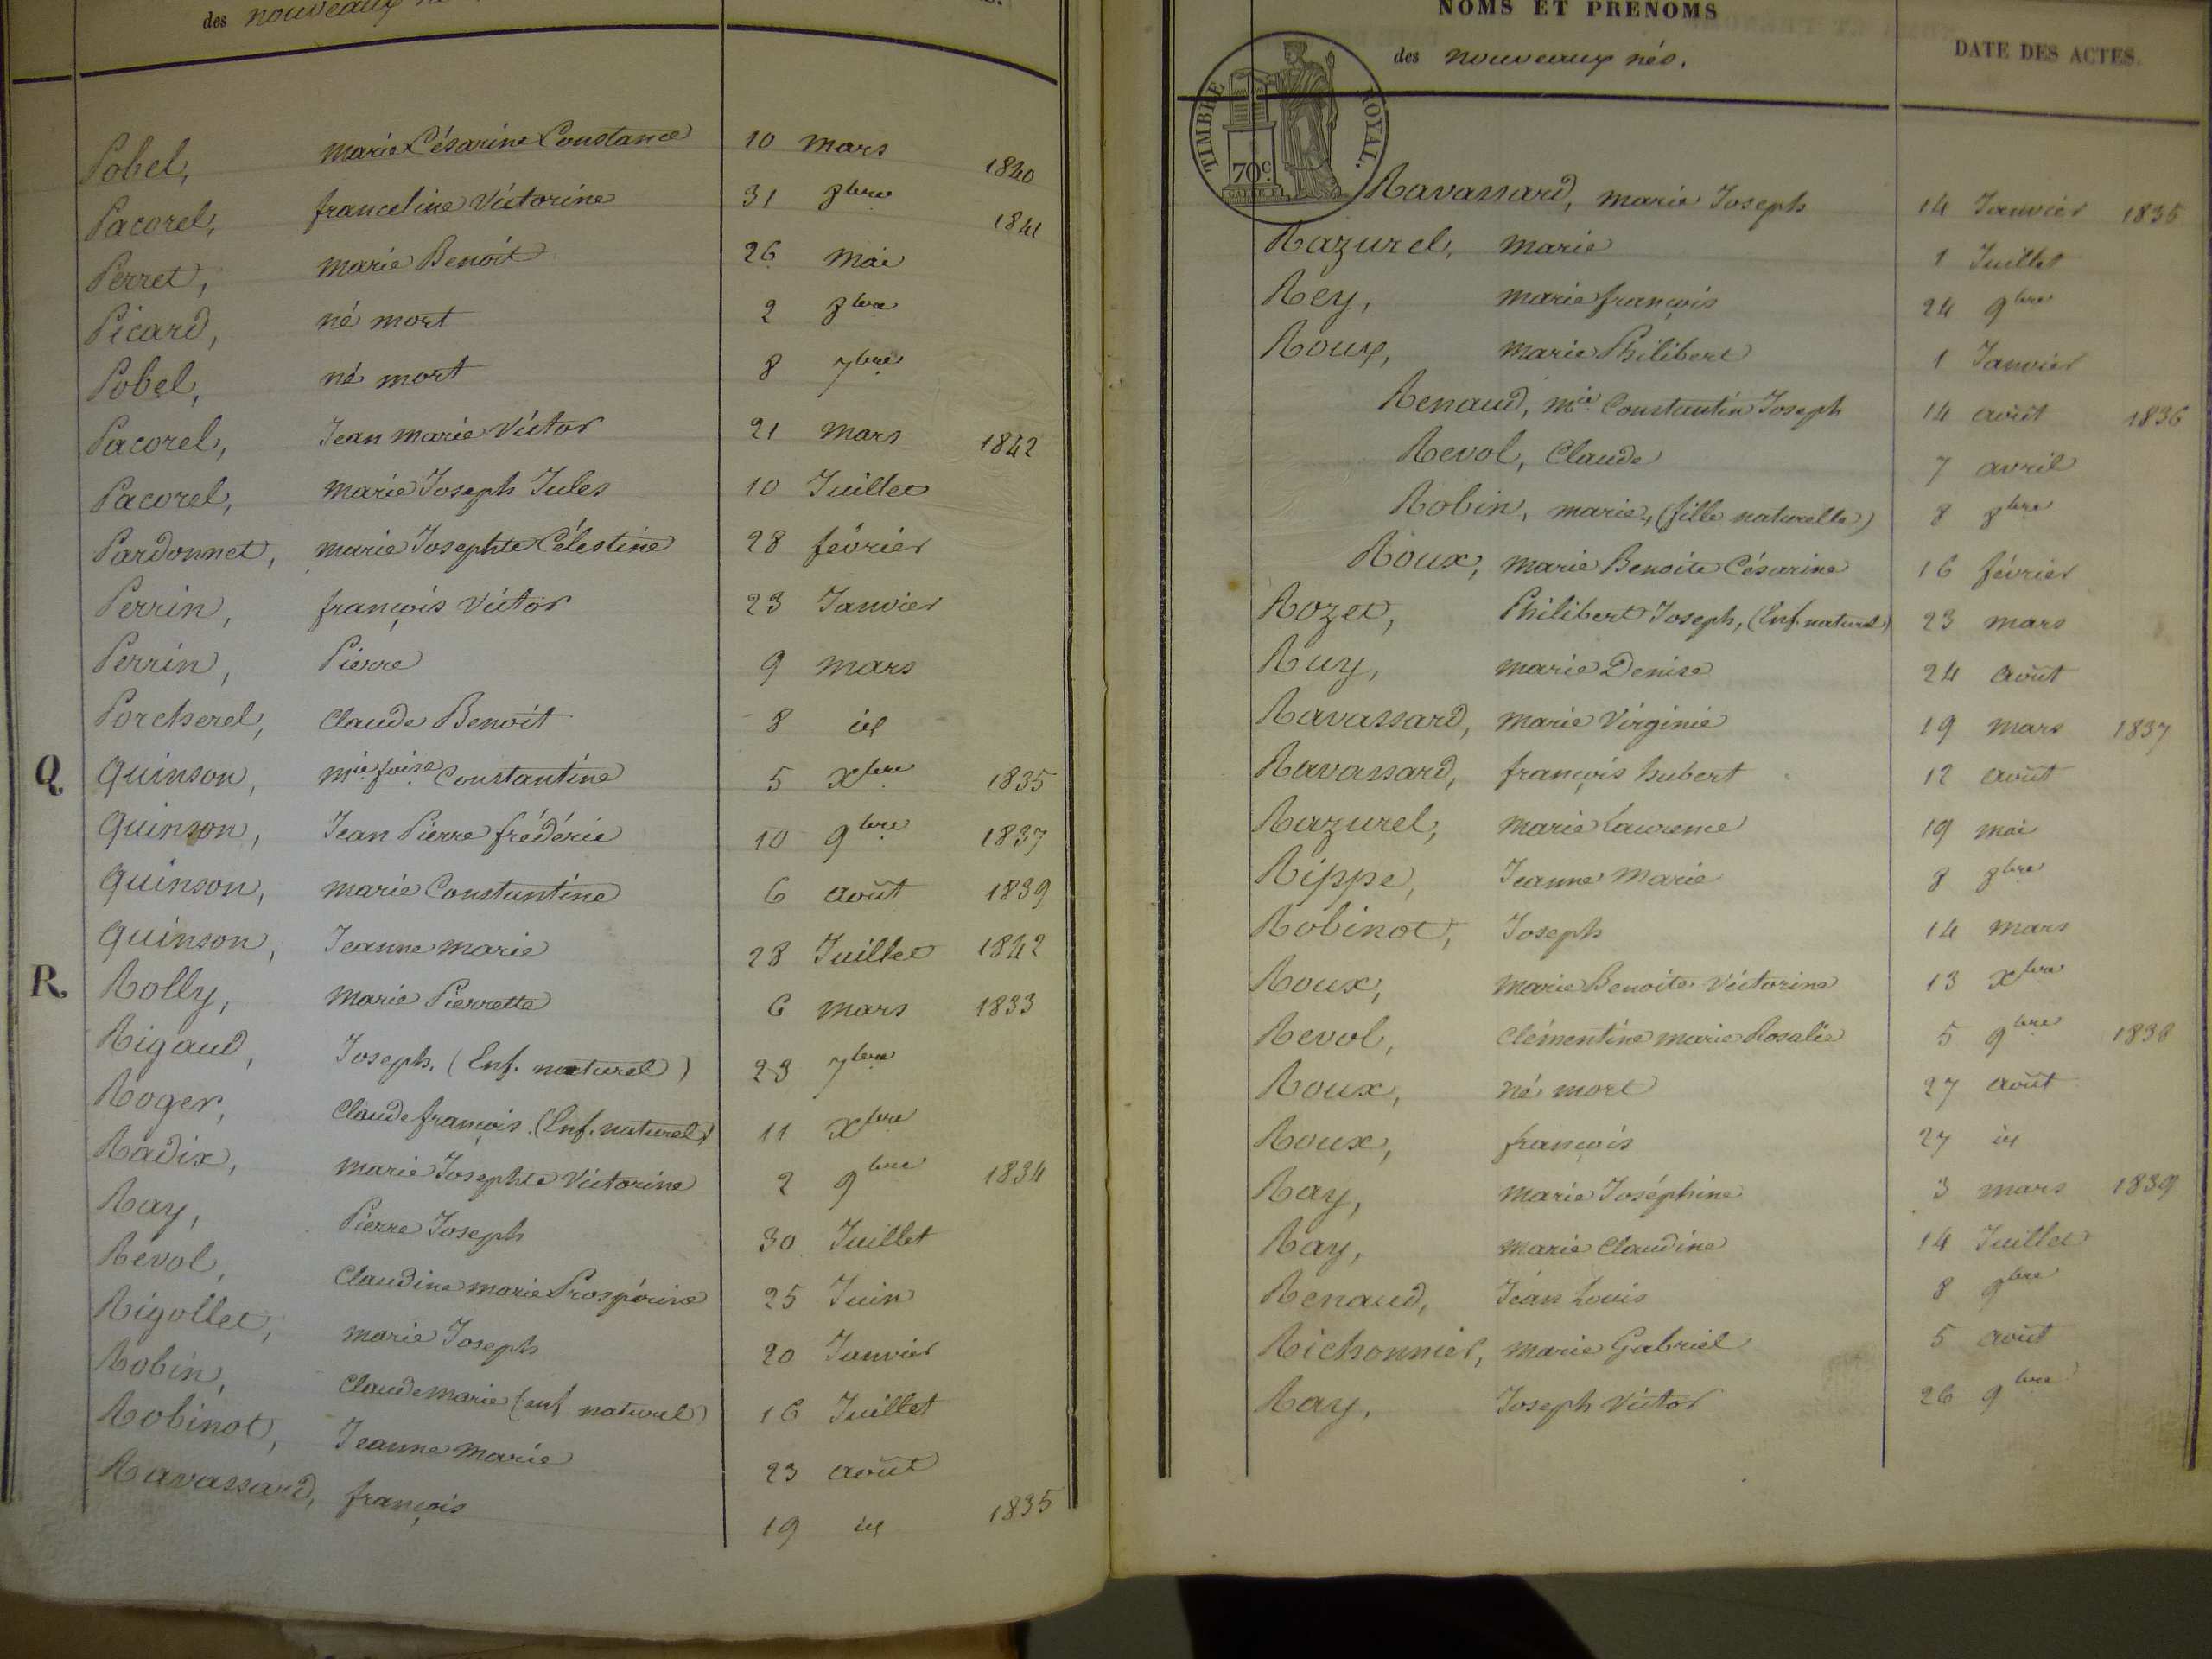 des nouveaux
Pobel, marie Césarine Constance 10 mars 1840
Pacorel, franceline Victorine 31 8bre 1841
Perret, marie Benoit 26 mai
Picard, né mort 2 8bre
Pobel, né mort 8 7bre
Pacorel, Jean marie Victor 21 mars 1842
Pacorel, marie Joseph Jules 10 Juillet
Pardonnet, marie Josephte Célestine 28 février
Perrin, françois Victor 23 Janvier
Perrin, Pierre 9 mars
Porcherel, Claude Benoit 8 id
Q Quinson, mie foise Constantine 5 xbre 1835
Quinson, Jean Pierre frédéric 10 9bre 1837
Quinson, marie Constantine 6 août 1839
Quinson, Jeanne marie 28 Juillet 1842
R Rolly, marie Pierrette 6 mars 1833
Rigaud, Joseph, (Enf. naturel) 23 7bre
Roger, Claude françois. (Enf. naturel) 11 xbre
Radix, marie Josephte Victorine 2 9bre 1834
Ray, Pierre Joseph 30 Juillet
Revol, Claudine marie Prospérine 25 Juin
Rigollet, marie Joseph 20 Janvier
Robin, Claude marie (enf naturel) 16 Juillet
Robinot, Jeanne marie 23 août
Ravassard, françois 19 id 1835
NOMS ET PRENOMS
des nouveaux nés.
DATE DES ACTES.
TIMBRE ROYAL.
70c.
Ravassard, marie Joseph 14 Janvier 1835
Razurel, marie 1 Juillet
Rey, marie françois 24 9bre
Roux, marie Philibert 1 Janvier
Renaud, mie Constantin Joseph 14 août 1836
Revol, Claude 7 avril
Robin, marie, (fille naturelle) 8 8bre
Roux, marie Benoite Césarine 16 février
Rozet, Philibert Joseph, (Enf. naturel) 23 mars
Ruy, marie Denise 24 août
Ravassard, marie Virginie 19 mars 1837
Ravassard, françois hubert 12 août
Razurel, marie Laurence 19 mai
Rippe, Jeanne Marie 8 8bre
Robinot, Joseph 14 mars
Roux, marie Benoite Victorine 13 xbre
Revol, Clémentine marie Rosalie 5 9bre 1838
Roux, né mort 27 août
Roux, françois 27 id
Ray, marie Joséphine 3 mars 1839
Ray, marie Claudine 14 Juillet
Renaud, Jean Louis 8 9bre
Richonnier, marie Gabriel 5 août
Ray, Joseph Victor 26 9bre